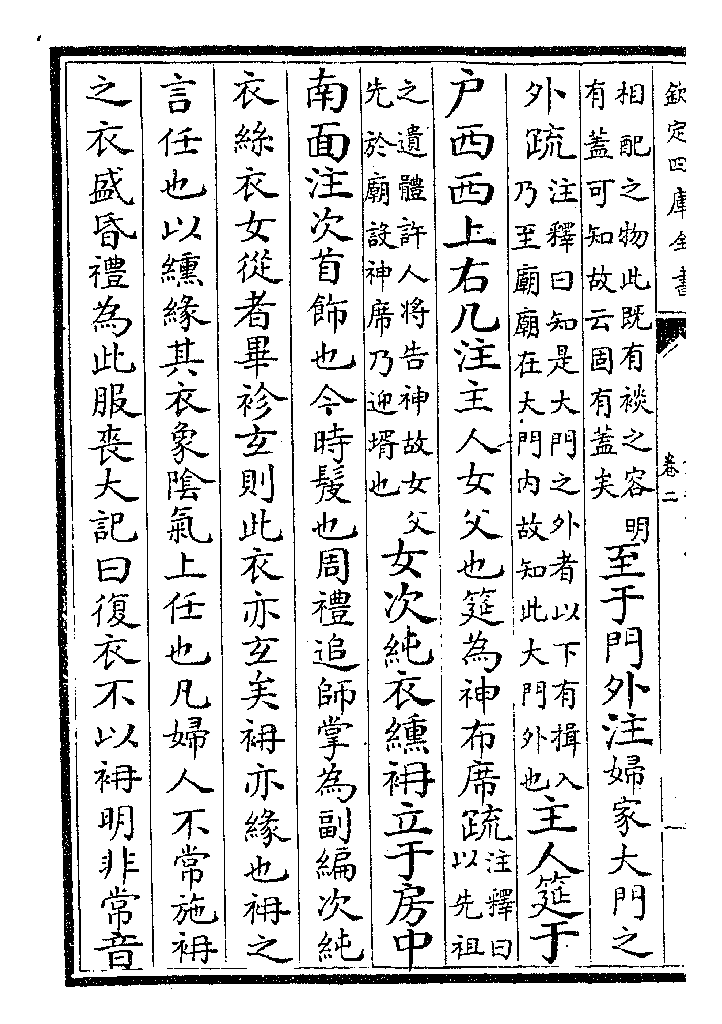 欽定四庫全書
卷二
相配之物此既有裧之容明
有蓋可知故云固有蓋矣
至于門外注婦家大門之
外疏
注釋曰知是大門之外者以下有揖入
乃至廟廟在大門内故知此大門外也
主人筵于
户西西上右几注主人女父也筵為神布席疏
注釋曰
以先祖
之遺體許人將告神故女父
先於廟設神席乃迎壻也
女次純衣纁袡立于房中
南面注次首飾也今時髲也周禮追師掌為副編次純
衣絲衣女從者畢袗玄則此衣亦玄矣袡亦緣也袡之
言任也以纁緣其衣象陰氣上任也凡婦人不常施袡
之衣盛昏禮為此服喪大記曰復衣不以袡明非常音